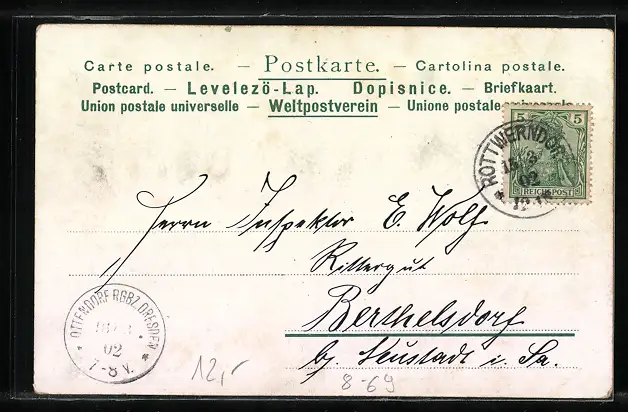 Carte postale. — Postkarte. — Cartolina postale.
Postcard. — Levelezö-Lap. Dopisnice. — Briefkaart.
Union postale universelle — Weltpostverein — Unione postale universale
5 5
REICHSPOST
ROTTWERNDORF
02
Herrn Inspektor E. Wolf
Rittergut
Berthelsdorf
b/ Neustadt i. Sa.
OTTENDORF RGBZ.DRESDEN
02
7-8 V.
12,-
8-69